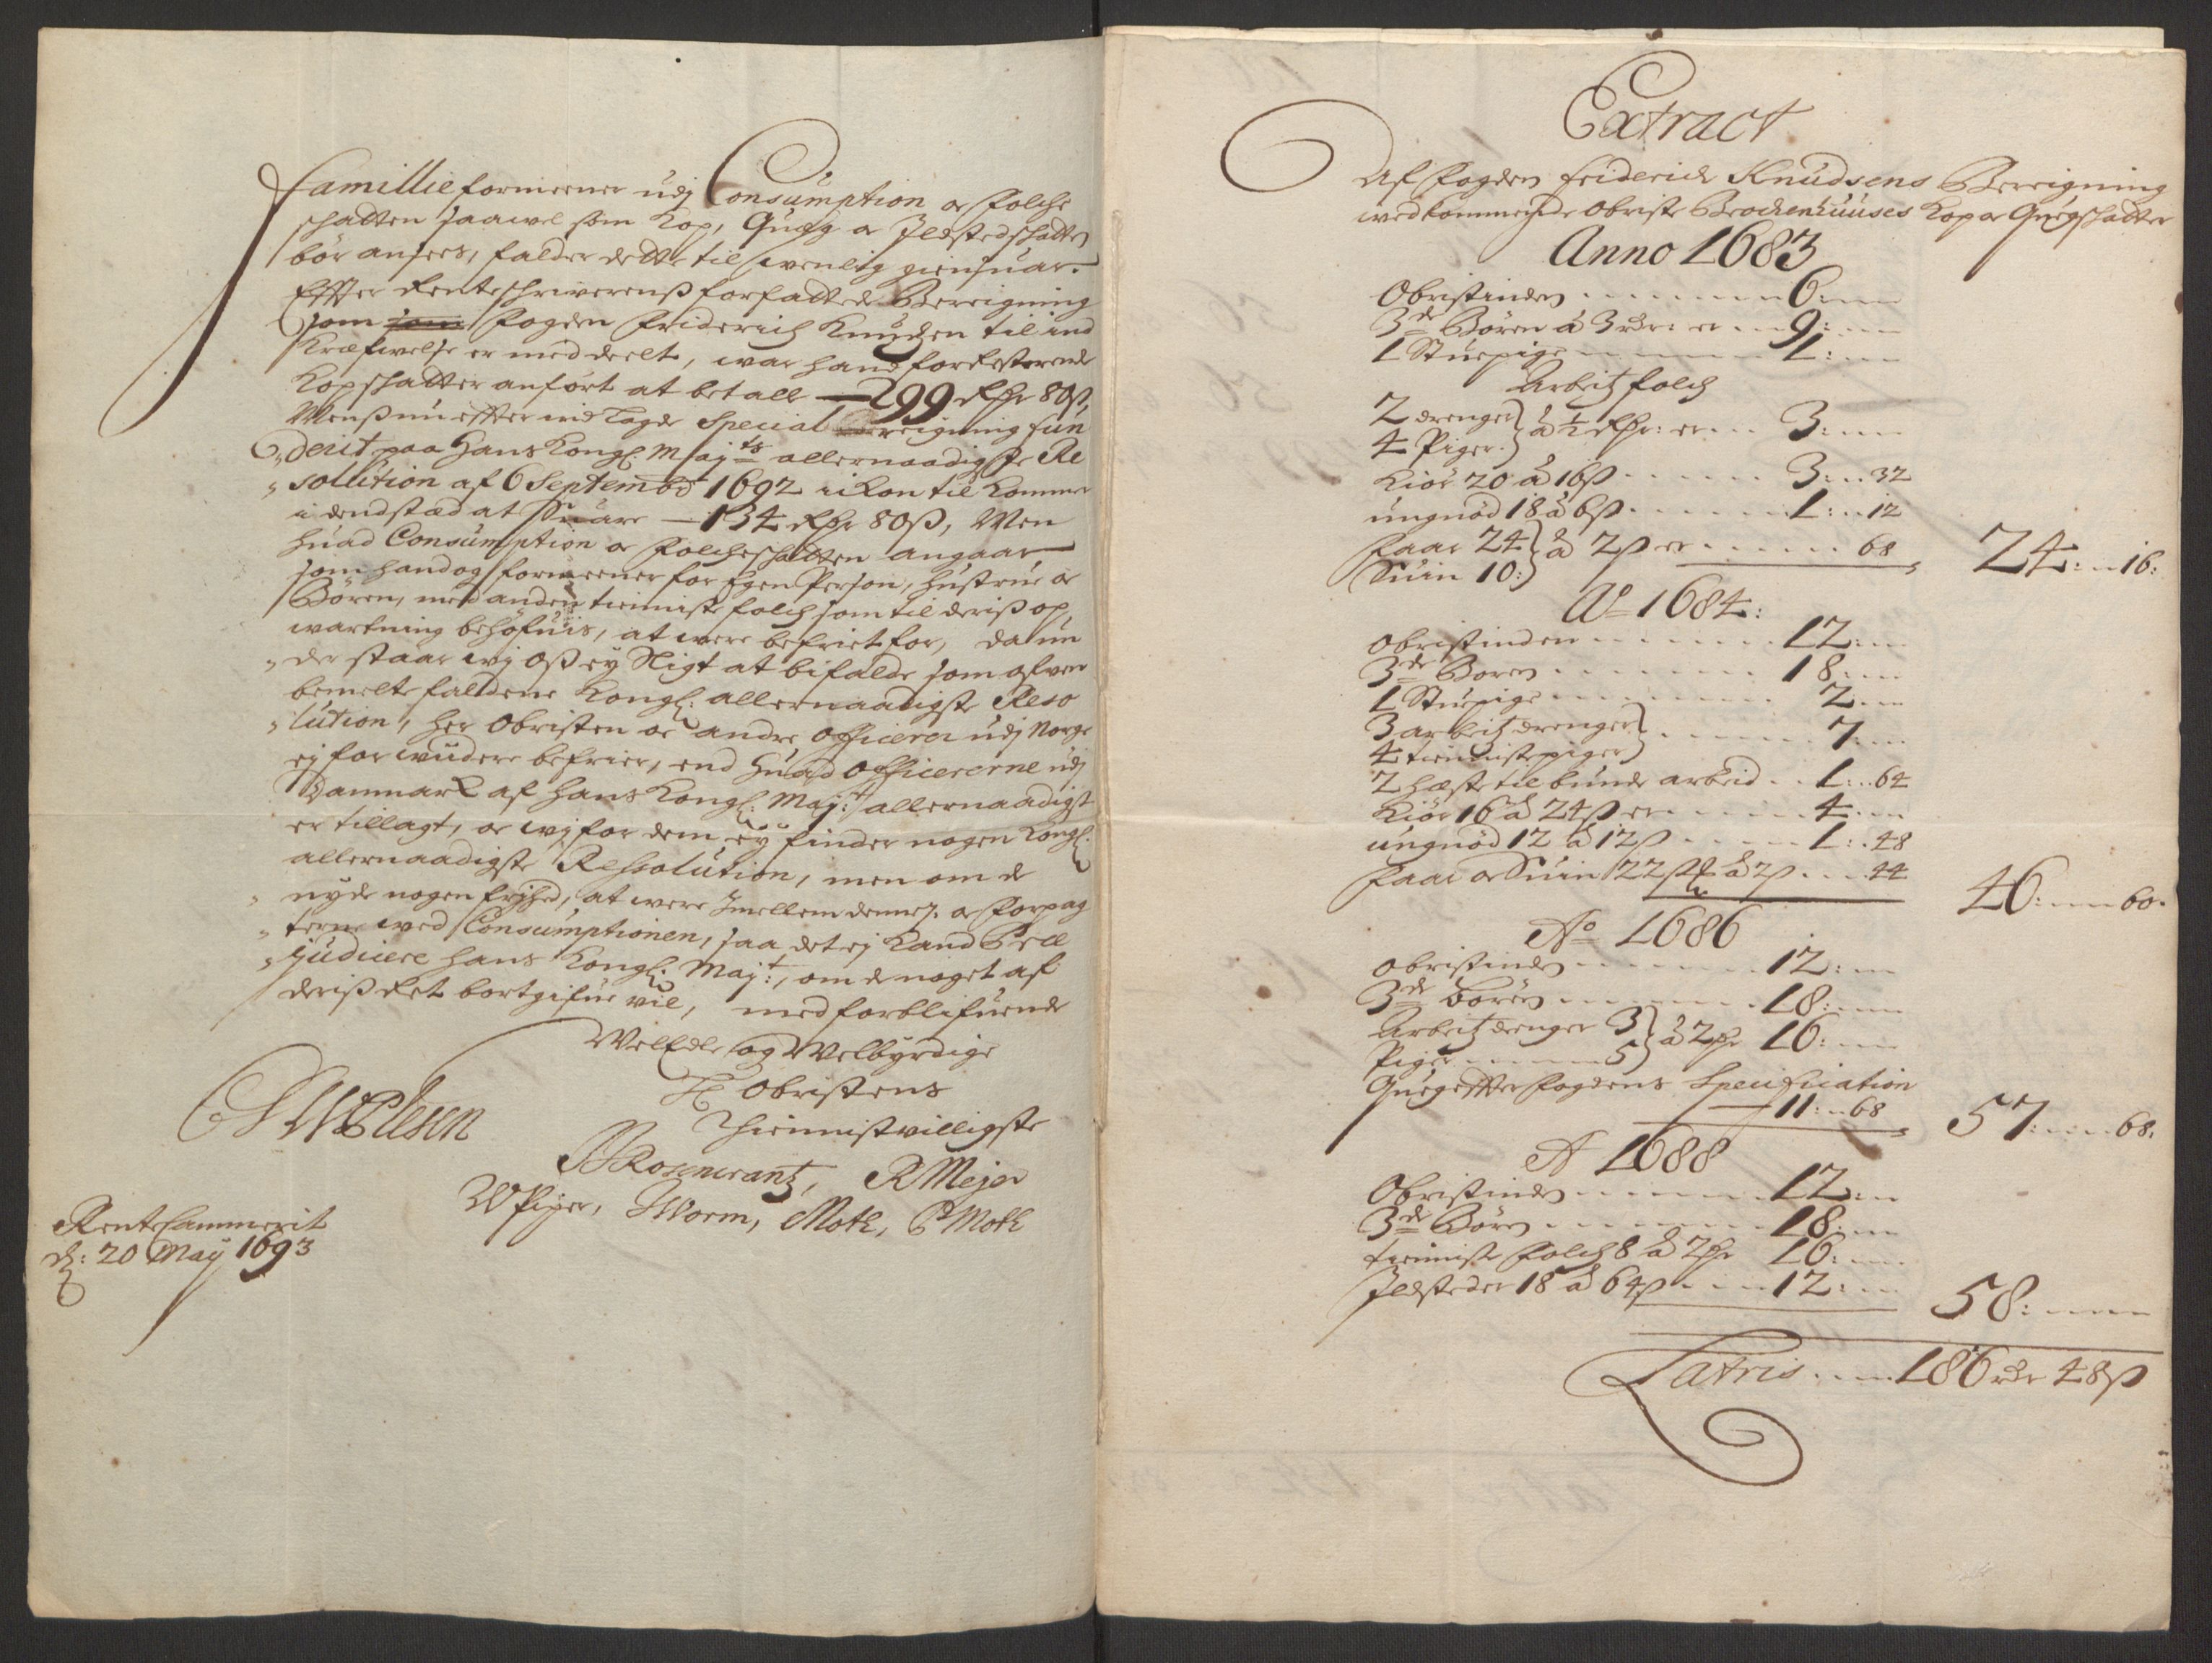 Famillie formeener udj Consumption oc Folche
schatten saawel som Kop, Quæg oc Ildstedschatter
bör ansees, falder dette til wenlig giensuar.
Effter Rentschriwerenß forfattede Bereigning
som som fogden Friderich Knudzen til ind
Kræfwelse er meddeelt, war hand for Resterende
Kopschatter anfört at betalle — 299 Rdr 80 ß,
Menß nu effter indtagde Special Bereigning fun
derit paa Hans Kongl: Maj:ts allernaadigste Re
sollution af 6 Septembr 1692 ickon til kommer
i dendstæd at Suare — 134 Rdr 80 ß, Men
huad Consumption oc Folcheschatten angaar
som hand og formeener for Egen Person, Hustrue oc
Börn, med anden tienniste folch som til deriß op
wartning behöfuis, at were befriet for, da un
der staar wj oß ej Sligt at bifalde som ofwen
bemelte faldene Kongl: allernaadigste Reso
lution, her Obristen oc andre Officerer udj Norge
ej for widere befrier, end huad Officererne udj
Danmark af Hans Kongl: Maj:t allernaadigst
er tillagt, oc wj for dem ey finder nogen Kongl:
allernaadigste Ressolution, men om de
nyde nogen frjhed, at were Imellem dennem oc Forpag
terne wed Consumptionen, saa det ej Kand Præ
judicere Hans Kongl: Maj:t, om de noget af
deriß Ret bortgifue vil, med forblifuende
WelEdle og Welbyrdige
Hr Obristens
Thiennistvilligste
CSWPlesen
Rosencrantz, R Mejer
W Piper, Worm, Moth, P Moth
RenteCammerit
d: 20 May 1693
Extract
Af fogden Friderich Knudsens Bereigning
wedkommende Obriste Brochenhuuses Kop oc Quegschatter
Anno 1683
Obristinden 6:
3de Bören â 3 Rdr: er 9:
1 Stuepige 1:
Arbeitzfolch
2 drenger
4 Piger } â ½ Rdr: er 3:
Kiör 20 â 16 ß 3: 32
ungnöd 18 â 6 ß 1: 12
faar 24
Suin 10: } â 2 ß er 68 24: 16:
Ao 1684:
Obristinden 12:
3de Boren 18:
1 Stuepige 2:
3 arbeitzdrenger
4 tiennistepiger } 7:
2 hæste til bunde arbeid 1: 64
Kiör 16 â 24 ß er 4:
ungnöd 12 â 12 ß 1: 48
faar oc Suin 22 st â 2 ß 44 46: 60.
Ao 1686
Obristinden 12:
3de börn 18:
Arbeitzdrenger 3
Piger 5 } â 2 Rdr 16:
Queg effter fogdens Specification
11: 68 57: 68.
A 1688
Obristinden 12:
3de Börn 18:
tienniste folch 8 â 2 Rdr 16:
Ildsteder 18 â 64 ß 12: 58:
Lateris 186 Rdr 48 ß